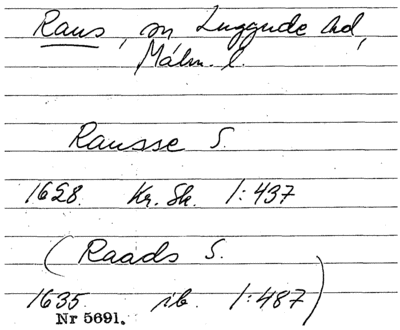 Raus, sn Luggude hd,
Malm. l.
Rausse S.
1628. Kr. Sk. 1:437
(Raads S.
1635 ib. 1:487)
Nr 5691.